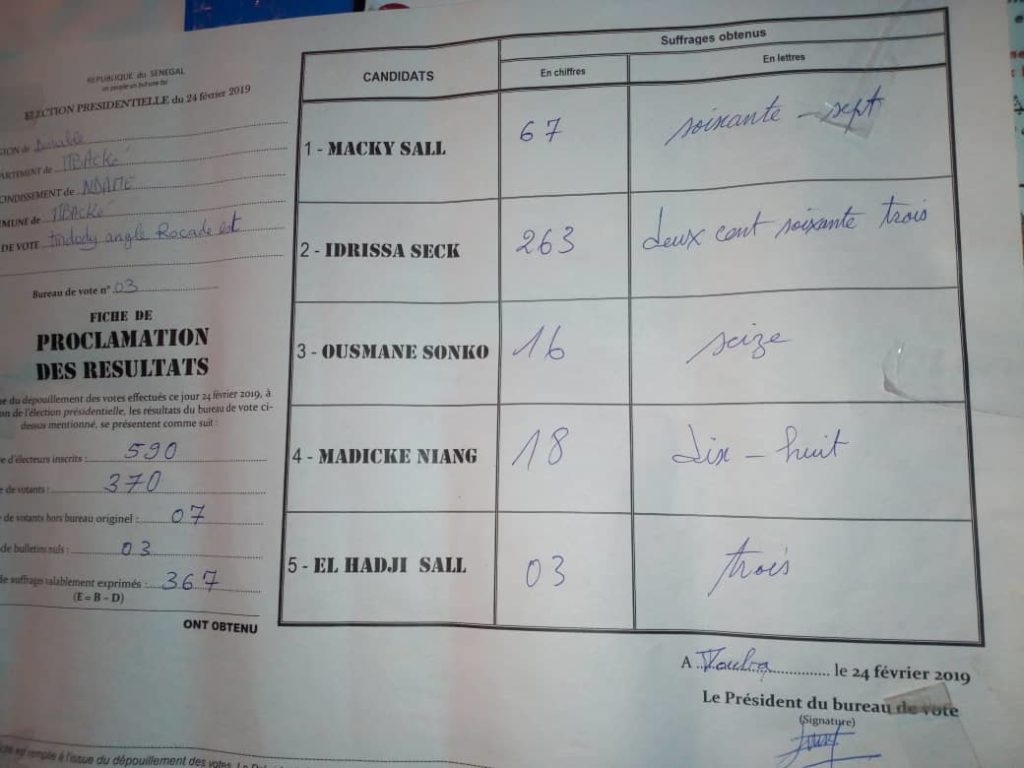 REPUBLIQUE du SENEGAL
un peuple un but une foi
ELECTION PRESIDENTIELLE du 24 février 2019
GION de Diourbel
ARTEMENT de MBACKé
ONDISSEMENT de NDAME
MUNE de MBACKé
DE VOTE angle Rocade est
Bureau de vote n° 03
FICHE DE
PROCLAMATION
DES RESULTATS
ue du dépouillement des votes effectués ce jour 24 février 2019, à
on de l'élection présidentielle, les résultats du bureau de vote ci-
dessus mentionné, se présentent comme suit :
e d'électeurs inscrits : 590
e de votants : 370
de votants hors bureau originel : 07
de bulletins nuls : 03
de suffrage valablement exprimés : 367
(E = B – D)
ONT OBTENU
CANDIDATS
Suffrages obtenus
En chiffres
En lettres
1 - MACKY SALL 67 soixante - sept
2 - IDRISSA SECK 263 deux cent soixante trois
3 - OUSMANE SONKO 16 seize
4 - MADICKE NIANG 18 dix - huit
5 - EL HADJI SALL 03 trois
A Touba le 24 février 2019
Le Président du bureau de vote
(Signature)
est remplie à l'issue du dépouillement des votes.